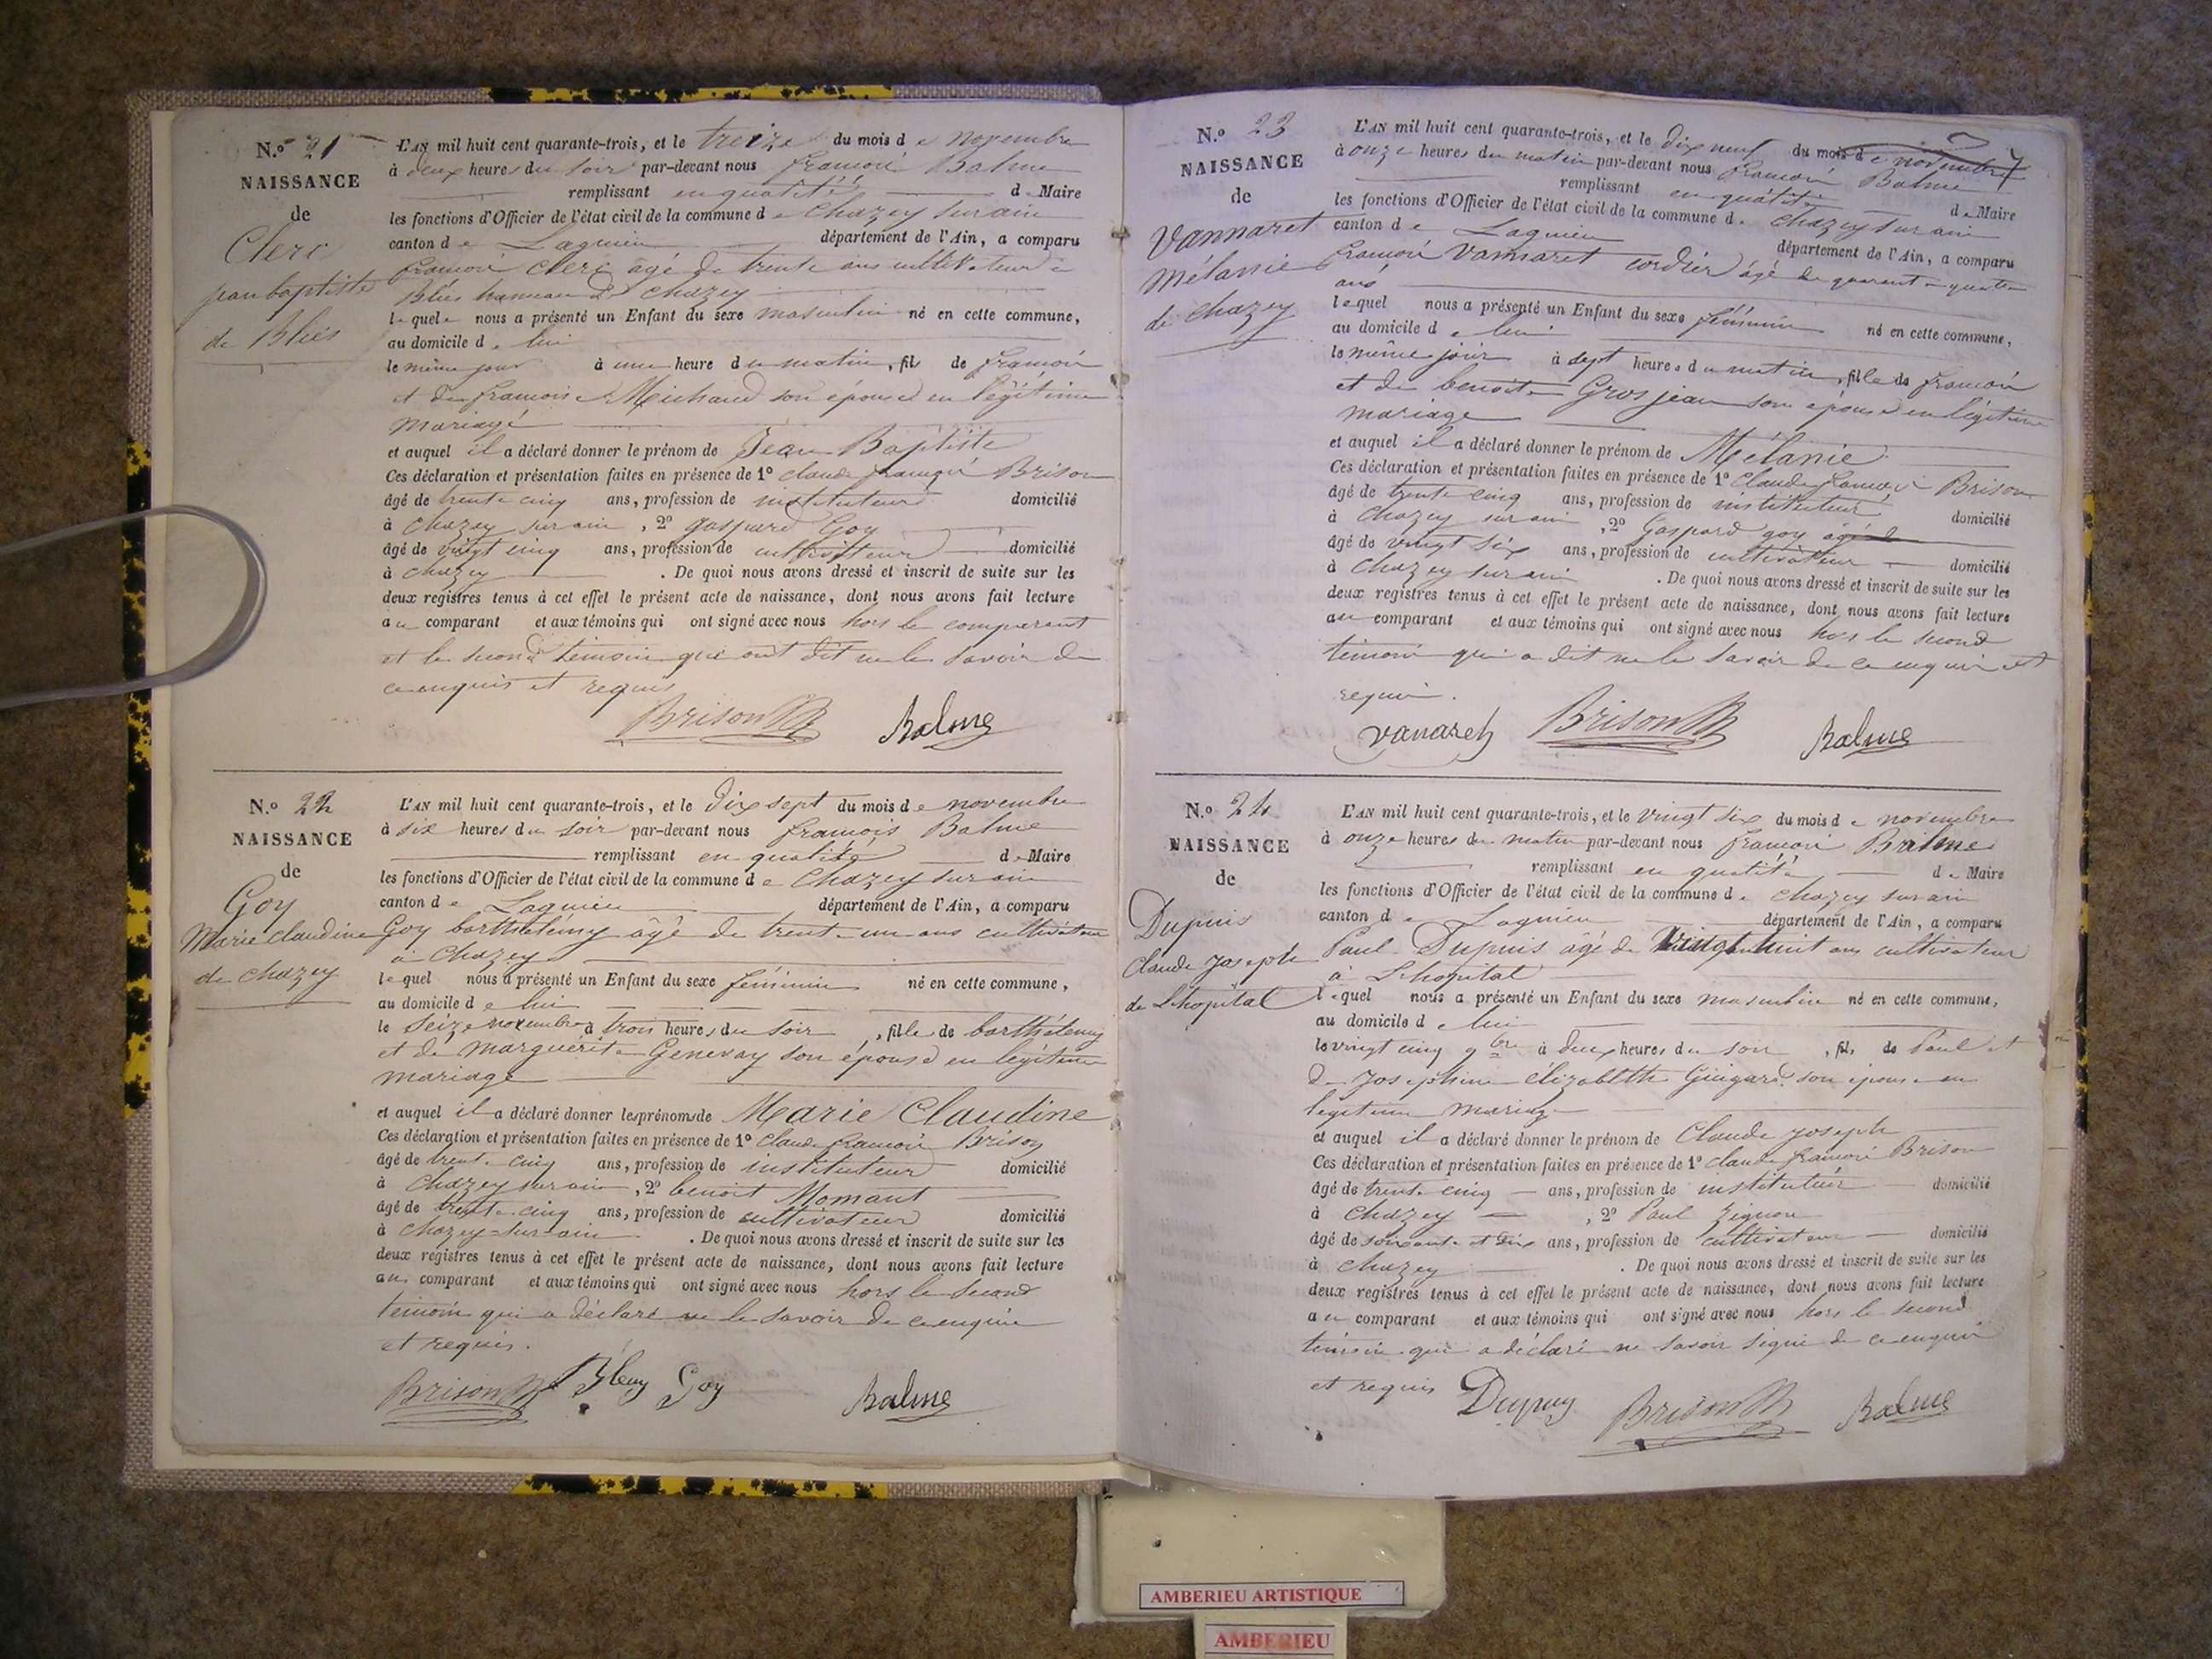 N.o 21
NAISSANCE
de
Clerc
jean baptiste
de Bliés
L'AN mil huit cent quarante-trois, et le treize du mois de novembre
à deux heures du soir par-devant nous françois Balme
remplissant en qualité de Maire
les fonctions d'Officier de l'état civil de la commune de Chazey sur ain
canton de Lagnieu département de l'Ain, a comparu
françois Clerc âgé de trente ans cultivateur à
Bliés hameau de Chazey
lequel nous a présenté un Enfant du sexe masculin né en cette commune,
au domicile de lui
le même jour à une heure du matin, fils de françois
et de francoise Michaud son épouse en légitime
mariage
et auquel il a déclaré donner le prénom de Jean Baptiste
Ces déclaration et présentation faites en présence de 1º Claude françois Brison
âgé de trente cinq ans, profession de instituteur domicilié
à Chazey sur ain, 2º gaspard Goy
âgé de vingt cinq ans, profession de cultivateur domicilié
à chazey. De quoi nous avons dressé et inscrit de suite sur les
deux registres tenus à cet effet le présent acte de naissance, dont nous avons fait lecture
au comparant et aux témoins qui ont signé avec nous hors le comparant
et le second témoin qui ont dit ne le savoir de
ce enquis et requis
Brison Balme
N.o 22
NAISSANCE
de
Goy
Marie Claudine
de chazey
L'AN mil huit cent quarante-trois, et le dix sept du mois de novembre
à six heures du soir par-devant nous françois Balme
remplissant en qualité de Maire
les fonctions d'Officier de l'état civil de la commune de Chazey sur ain
canton de Lagnieu département de l'Ain, a comparu
Goy barthélémy âgé de trente un ans cultivateur
à Chazey
lequel nous a présenté un Enfant du sexe féminin né en cette commune,
au domicile de lui
le seize novembre à trois heures du soir, fille de barthélemy
et de marguérite Genevay son épouse en legitime
mariage
et auquel il a déclaré donner les prénoms de Marie Claudine
Ces déclaration et présentation faites en présence de 1º Claude francois Brison
âgé de trente cinq ans, profession de instituteur domicilié
à Chazey sur ain, 2º benoit Momant
âgé de trente cinq ans, profession de cultivateur domicilié
à chazey-sur-ain. De quoi nous avons dressé et inscrit de suite sur les
deux registres tenus à cet effet le présent acte de naissance, dont nous avons fait lecture
au comparant et aux témoins qui ont signé avec nous hors le second
témoin qui a déclaré ne le savoir de ce enquis
et requis.
Brison Goy Balme
N.o 23
NAISSANCE
de
Vannaret
Mélanie
de Chazey
7
L'AN mil huit cent quarante-trois, et le dix neuf du mois de novembre
à onze heures du matin par-devant nous françois Balme
remplissant en qualité de Maire
les fonctions d'Officier de l'état civil de la commune de Chazey sur ain
canton de Lagnieu département de l'Ain, a comparu
françois Vannaret cordier âgé de quarante quatre
ans
lequel nous a présenté un Enfant du sexe féminin né en cette commune,
au domicile de lui
le même jour à sept heures du matin, fille de françois
et de benoite Grosjean son épouse en légitime
mariage
et auquel il a déclaré donner le prénom de Mélanie
Ces déclaration et présentation faites en présence de 1º Claude francois Brison
âgé de trente cinq ans, profession de instituteur domicilié
à Chazey sur ain, 2º Gaspard goy âgé
âgé de vingt six ans, profession de cultivateur domicilié
à Chazey sur ain. De quoi nous avons dressé et inscrit de suite sur les
deux registres tenus à cet effet le présent acte de naissance, dont nous avons fait lecture
au comparant et aux témoins qui ont signé avec nous hors le second
témoin qui a dit ne le savoir de ce enquis et
requis.
vanareh Brison Balme
N.o 24
NAISSANCE
de
Dupuis
Claude Joseph
de Lhopital
L'AN mil huit cent quarante-trois, et le vingt six du mois de novembre
à onze heures du matin par-devant nous françois Balme
remplissant en qualité de Maire
les fonctions d'Officier de l'état civil de la commune de chazey sur ain
canton de Lagnieu département de l'Ain, a comparu
Paul Dupuis âgé de vingt huit ans cultivateur
à Lhopital
lequel nous a présenté un Enfant du sexe masculin né en cette commune,
au domicile de lui
le vingt cinq 9bre à deux heures du soir, fils de Paul et
de Josephine élizabeth Guigard son épouse en
legitime mariage
et auquel il a déclaré donner le prénom de Claude joseph
Ces déclaration et présentation faites en présence de 1º claude françois Brison
âgé de trente cinq ans, profession de instituteur domicilié
à Chazey, 2º Paul
âgé de soixante et dix ans, profession de cultivateur domicilié
à Chazey. De quoi nous avons dressé et inscrit de suite sur les
deux registres tenus à cet effet le présent acte de naissance, dont nous avons fait lecture
au comparant et aux témoins qui ont signé avec nous hors le second
témoin qui a déclaré ne savoir signé de ce enquis
et requis
Dupuy Brison Balme
AMBERIEU ARTISTIQUE
AMBERIEU